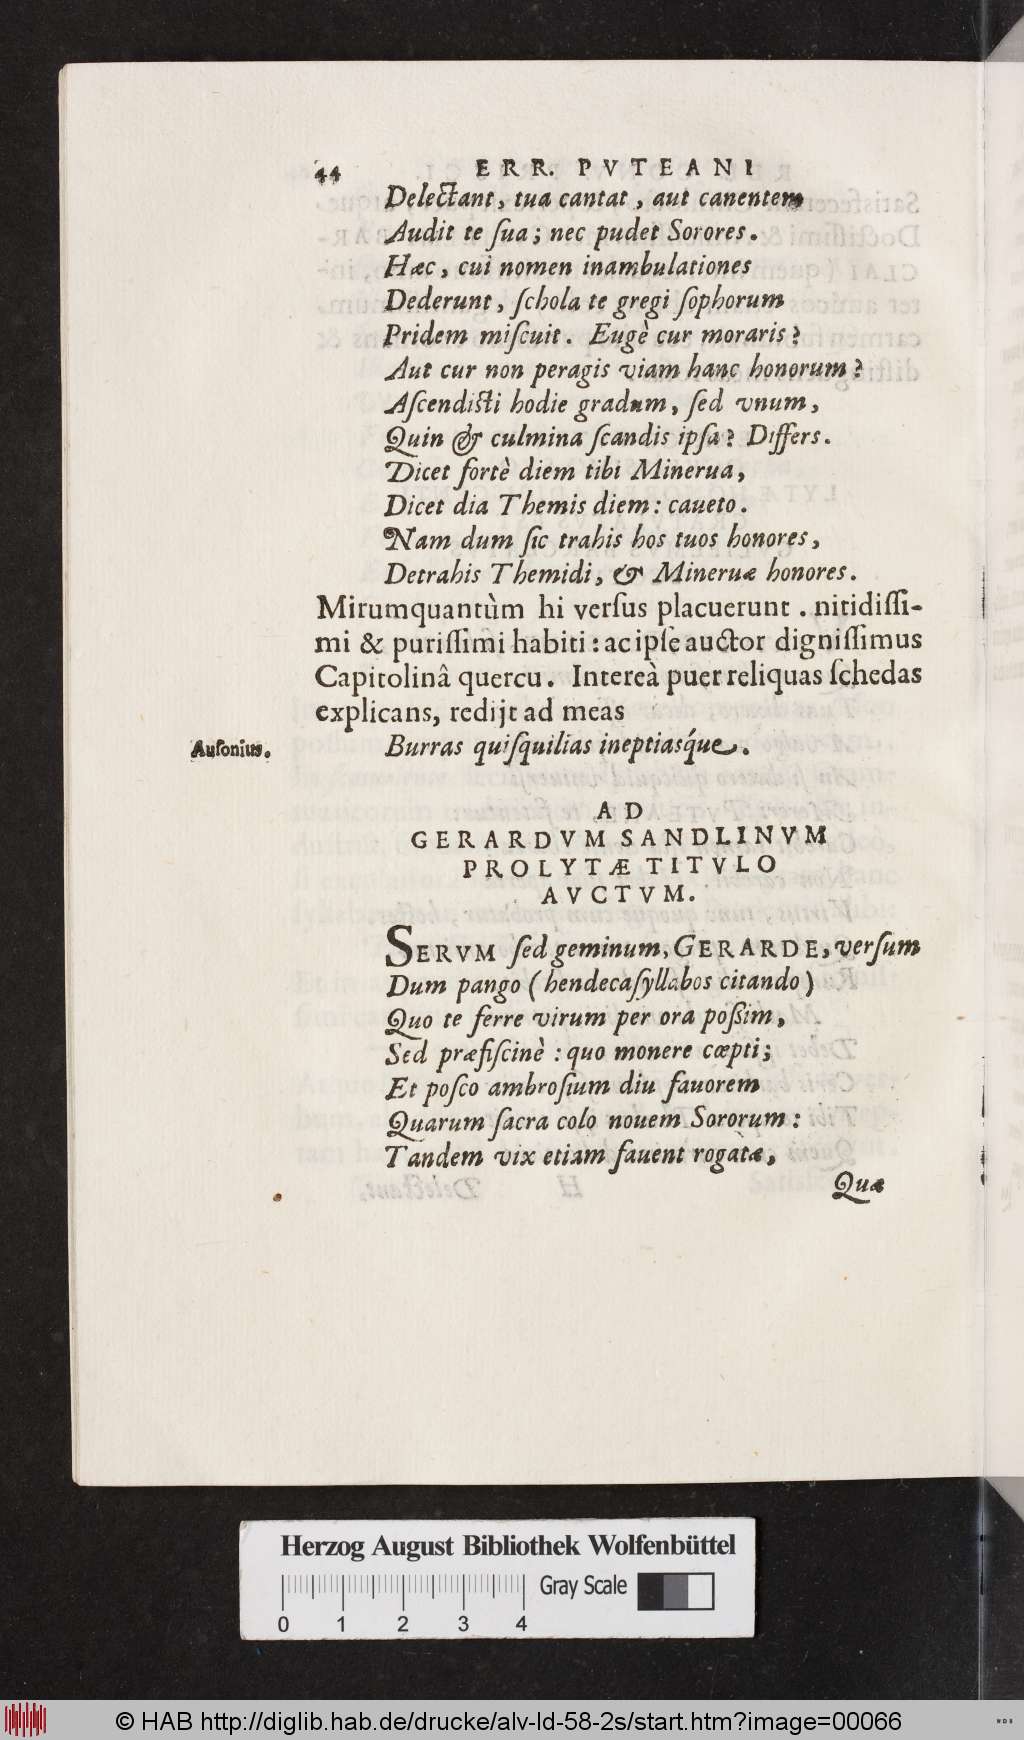 44 ERR. PVTEANI
Delectant, tua cantat, aut canentem
Audit te ſua; nec pudet Sorores.
Hæc, cui nomen inambulationes
Dederunt, ſchola te gregi ſophorum
Pridem miſcuit. Eugè cur moraris?
Aut cur non peragis viam hanc honorum?
Aſcendiſti hodie gradum, ſed vnum,
Quin & culmina ſcandis ipſa? Differs.
Dicet fortè diem tibi Minerua,
Dicet dia Themis diem: caueto.
Nam dum ſic trahis hos tuos honores,
Detrahis Themidi, & Mineruæ honores.
Mirumquantùm hi verſus placuerunt. nitidiſſi-
mi & puriſſimi habiti: ac ipſe auctor digniſſimus
Capitolinâ quercu. Intereà puer reliquas ſchedas
explicans, redijt ad meas
Auſonius. Burras quiſquilias ineptiasq́ue.
AD
GERARDVM SANDLINVM
PROLYTÆ TITVLO
AVCTVM.
SERVM ſed geminum, GERARDE, verſum
Dum pango (hendecaſyllabos citando)
Quo te ferre virum per ora poßim,
Sed præfiſcinè: quo monere cœpti;
Et poſco ambroſium diu fauorem
Quarum ſacra colo nouem Sororum:
Tandem vix etiam fauent rogàtæ,
Quæ
Herzog August Bibliothek Wolfenbüttel
Gray Scale
0 1 2 3 4
© HAB http://diglib.hab.de/drucke/alv-ld-58-2s/start.htm?image=00066